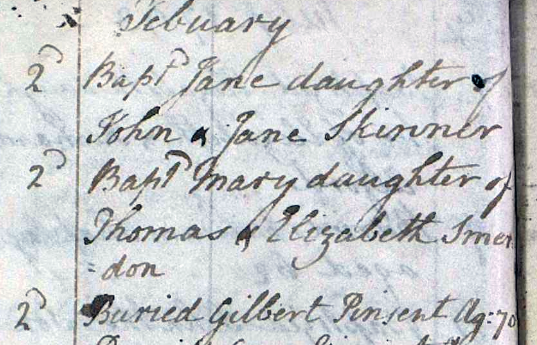 Febuary
2d Bapt.d Jane daughter of
John & Jane Skinner
2d Bapt.d Mary daughter of
Thomas & Elizabeth Smer
=don
2d Buried Gilbert Pinsent Ag: 70